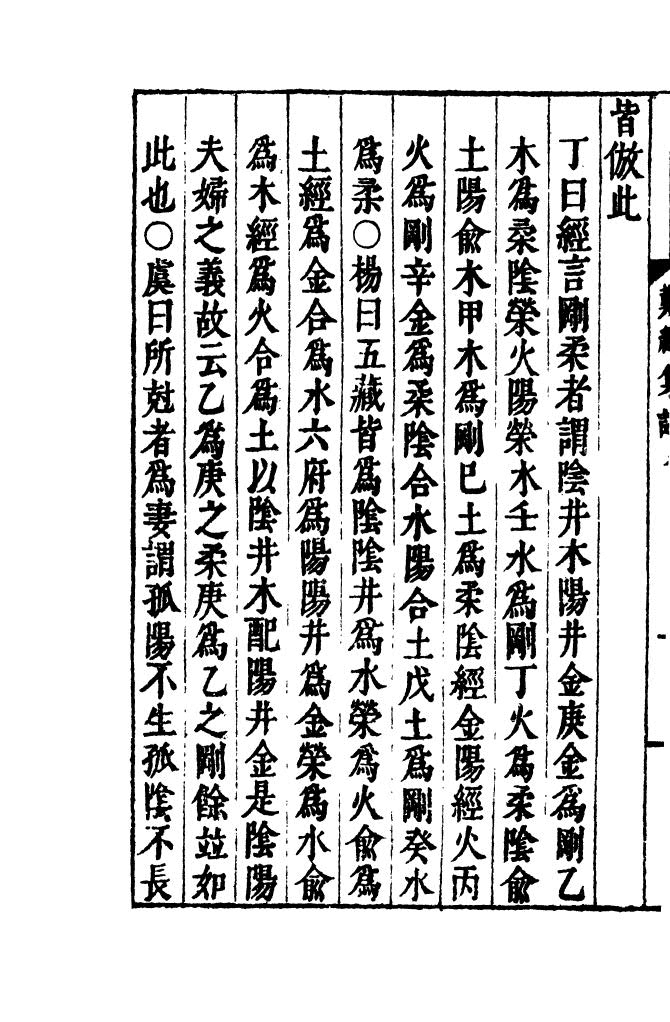 皆倣此
丁曰經言剛柔者謂陰井木陽井金庚金爲剛乙
木爲柔陰榮火陽榮水壬水爲剛丁火爲柔陰俞
土陽俞木甲木爲剛巳土爲柔陰經金陽經火丙
火爲剛辛金爲柔陰合水陽合土戊土爲剛癸水
爲柔○楊曰五藏皆爲陰陰井爲木榮爲火俞爲
土經爲金合爲水六府爲陽陽井爲金榮爲水俞
爲木經爲火合爲土以陰井木配陽井金是陰陽
夫婦之義故云乙爲庚之柔庚爲乙之剛餘竝如
此也○虞曰所尅者爲妻謂孤陽不生孤陰不長